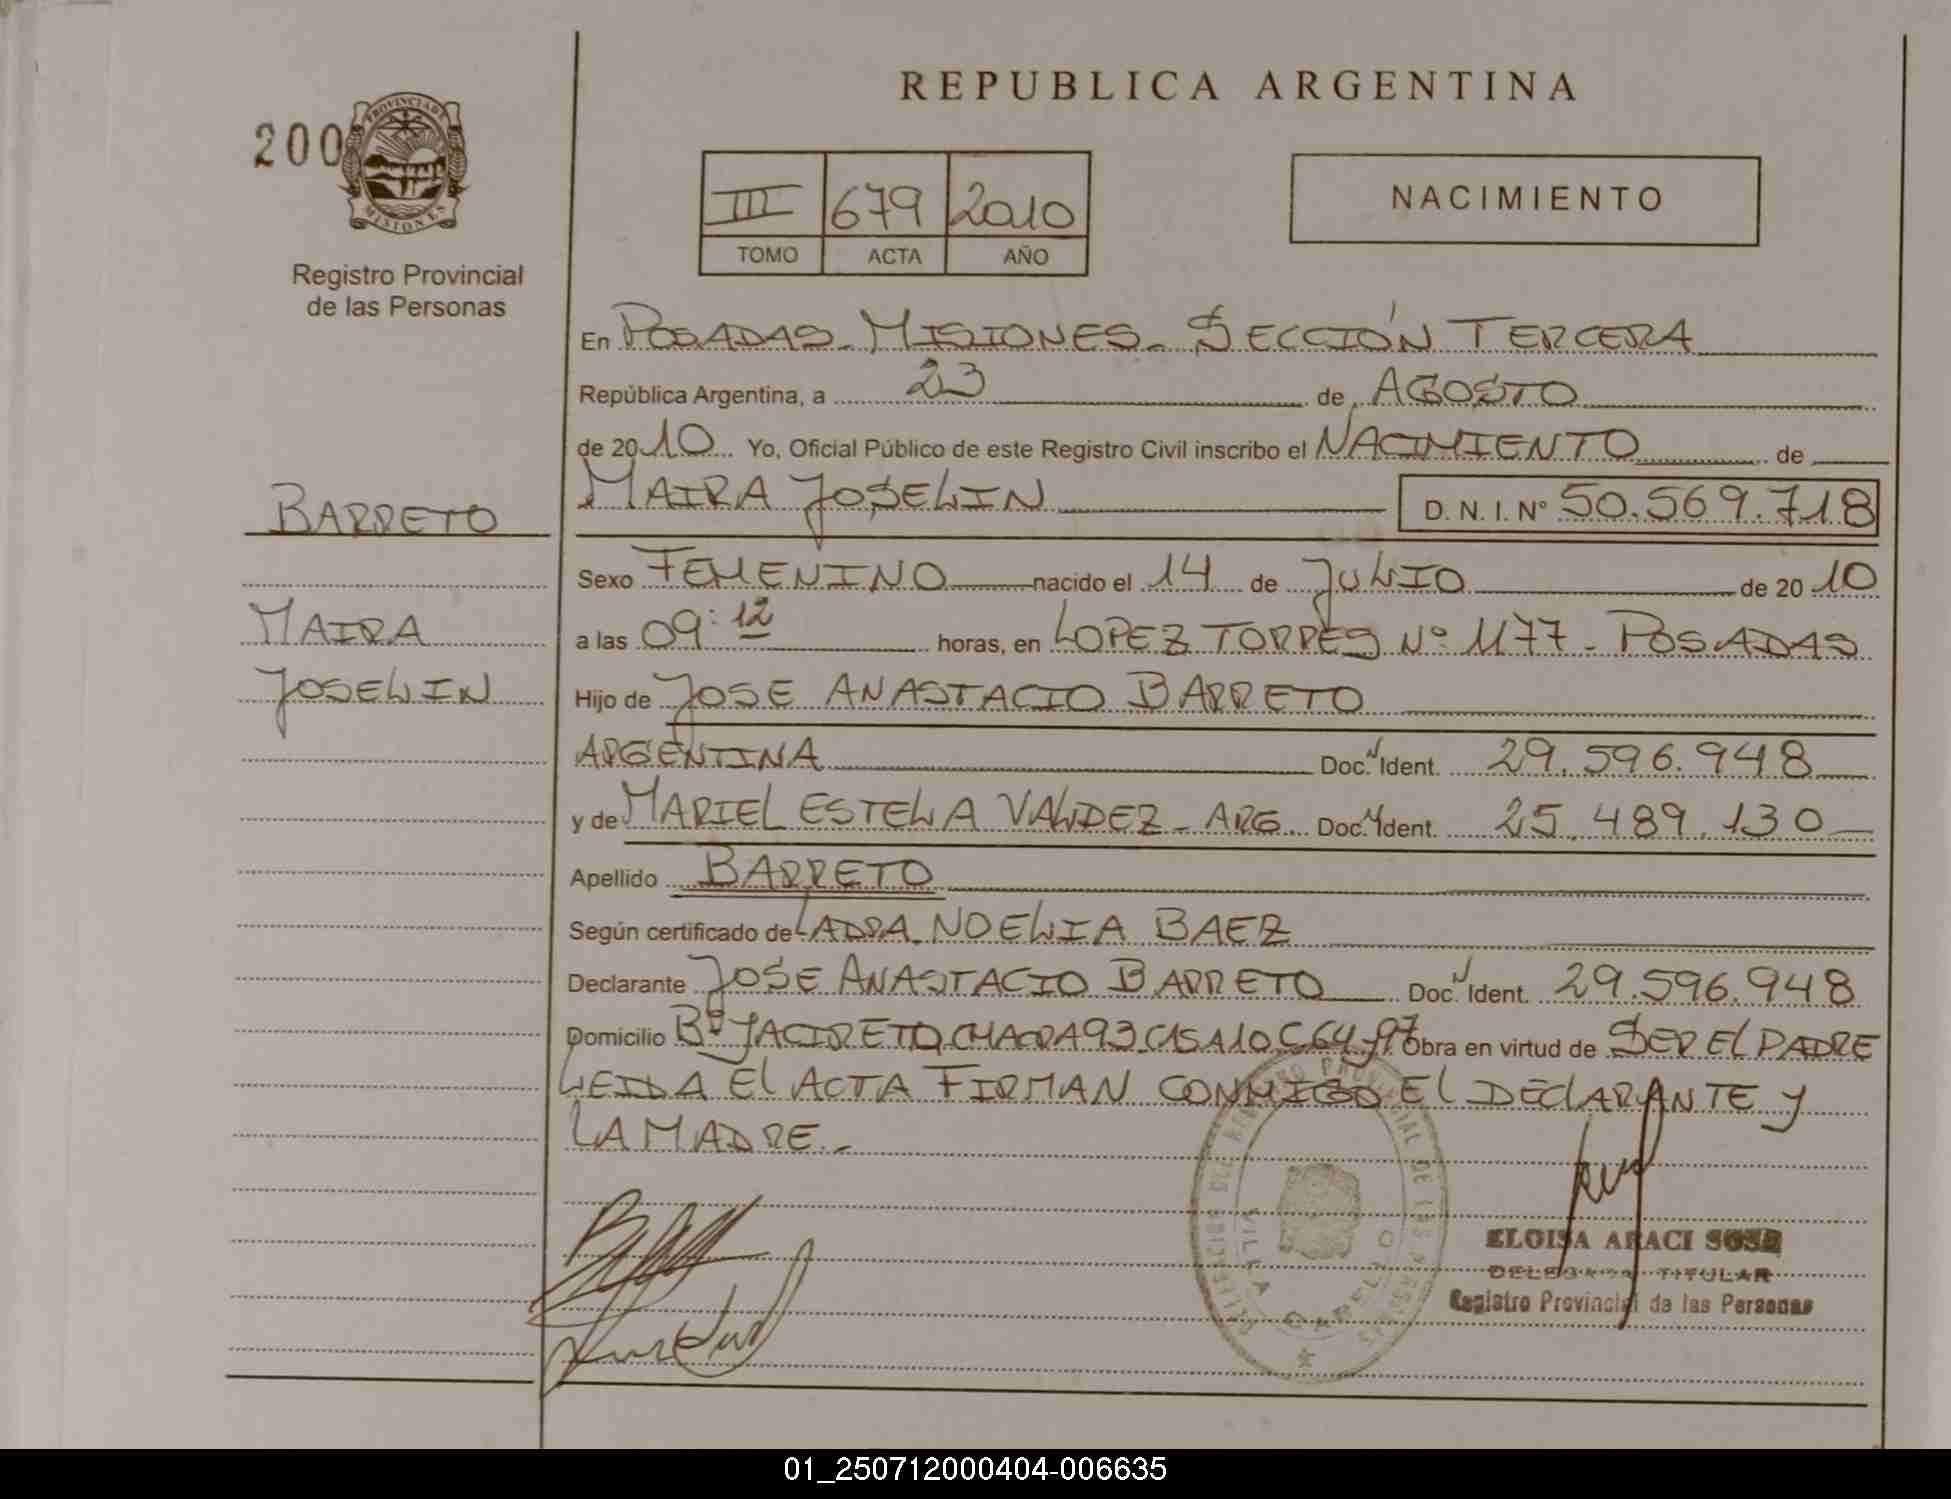 REPUBLICA ARGENTINA
200
PROVINCIA DE
MISIONES
Registro Provincial
de las Personas
III 679 2010
TOMO ACTA AÑO
NACIMIENTO
BARRETO
MAIRA
JOSELIN
En POSADAS - MISIONES - SECCIÓN TERCERA
República Argentina, a 23 de AGOSTO
de 2010 Yo, Oficial Público de este Registro Civil inscribo el NACIMIENTO de
MAIRA JOSELIN D. N. I. Nº 50.569.718
Sexo FEMENINO nacido el 14 de JULIO de 20 10
a las 09:12 horas, en LOPEZ TORRES Nº 1177 - POSADAS
Hijo de JOSE ANASTACIO BARRETO
ARGENTINA Doc. Ident. 29.596.948
y de MARIEL ESTELA VALDEZ - ARG. Doc. Ident. 25.489.130
Apellido BARRETO
Según certificado de LADRA. NOELIA BAEZ
Declarante JOSE ANASTACIO BARRETO Doc. Ident. 29.596.948
Domicilio Bº YACIRETO CHACRA 93 CASA 10 Obra en virtud de SER EL PADRE
LEIDA EL ACTA FIRMAN CONMIGO EL DECLARANTE Y
LA MADRE.-
VILLA CABELLO
ELOISA ARACI SOSA
DELEGADA TITULAR
Registro Provincial de las Personas
01_250712000404-006635